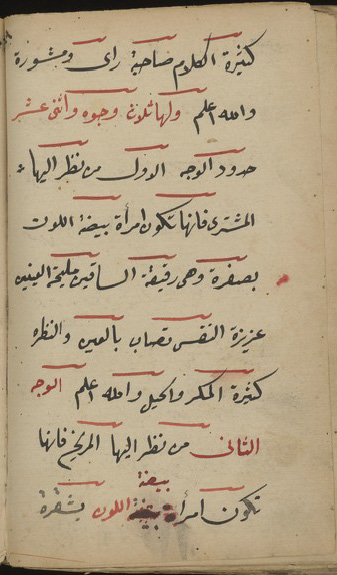 كثيرة الكلام صاحبة راى ومشورة
والله اعلم ولها ثلاث وجوه واثنى عشر
حدود الوجه الاول من نظر اليها
المشترى فانها تكون امرأة بيضة اللون
بصفرة وهى رقيقة الساقين مليحة العينين
عزيزة النفس تصاب بالعين والنظره
كثيرة المكر والحيل والله اعلم الوجه
الثانى من نظر اليها المريخ فانها
بيضة
تكون امرأة اللون بشقرة